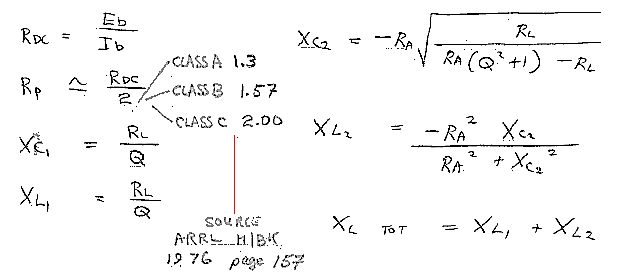 R_DC = Eb / Ib
R_P ≃ R_DC / 2
CLASS A 1.3
CLASS B 1.57
CLASS C 2.00
X_C1 = R_L / Q
X_L1 = R_L / Q
SOURCE
ARRL H|BK
1976 page 157
X_C2 = -R_A √( R_L / ( R_A (Q² + 1) - R_L ) )
X_L2 = -R_A² X_C2 / ( R_A² + X_C2² )
X_L TOT = X_L1 + X_L2